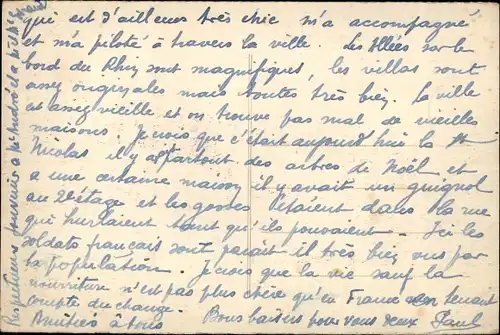 qui est d'ailleurs très chic m'a accompagné
et m'a piloté à travers la ville. Les Allées sur le
bord du Rhin sont magnifiques, les villas sont
assez originales mais toutes très bien. La ville
est assez vieille et on trouve pas mal de vieilles
maisons. Je crois que c'était aujourd'hui la St
Nicolas il y a partout des arbres de Noël et
a une certaine maison il y avait un guignol
au 2e étage et les gosses étaient dans la rue
qui hurlaient tant qu'ils pouvaient. Ici les
soldats français sont paraît il très bien vus par
la population. Je crois que la vie sauf la
nourriture n'est pas plus chère qu'en France en tenant
compte du change. Bons baisers pour vous deux
Amitiés à tous Paul
Respectueux souvenir à